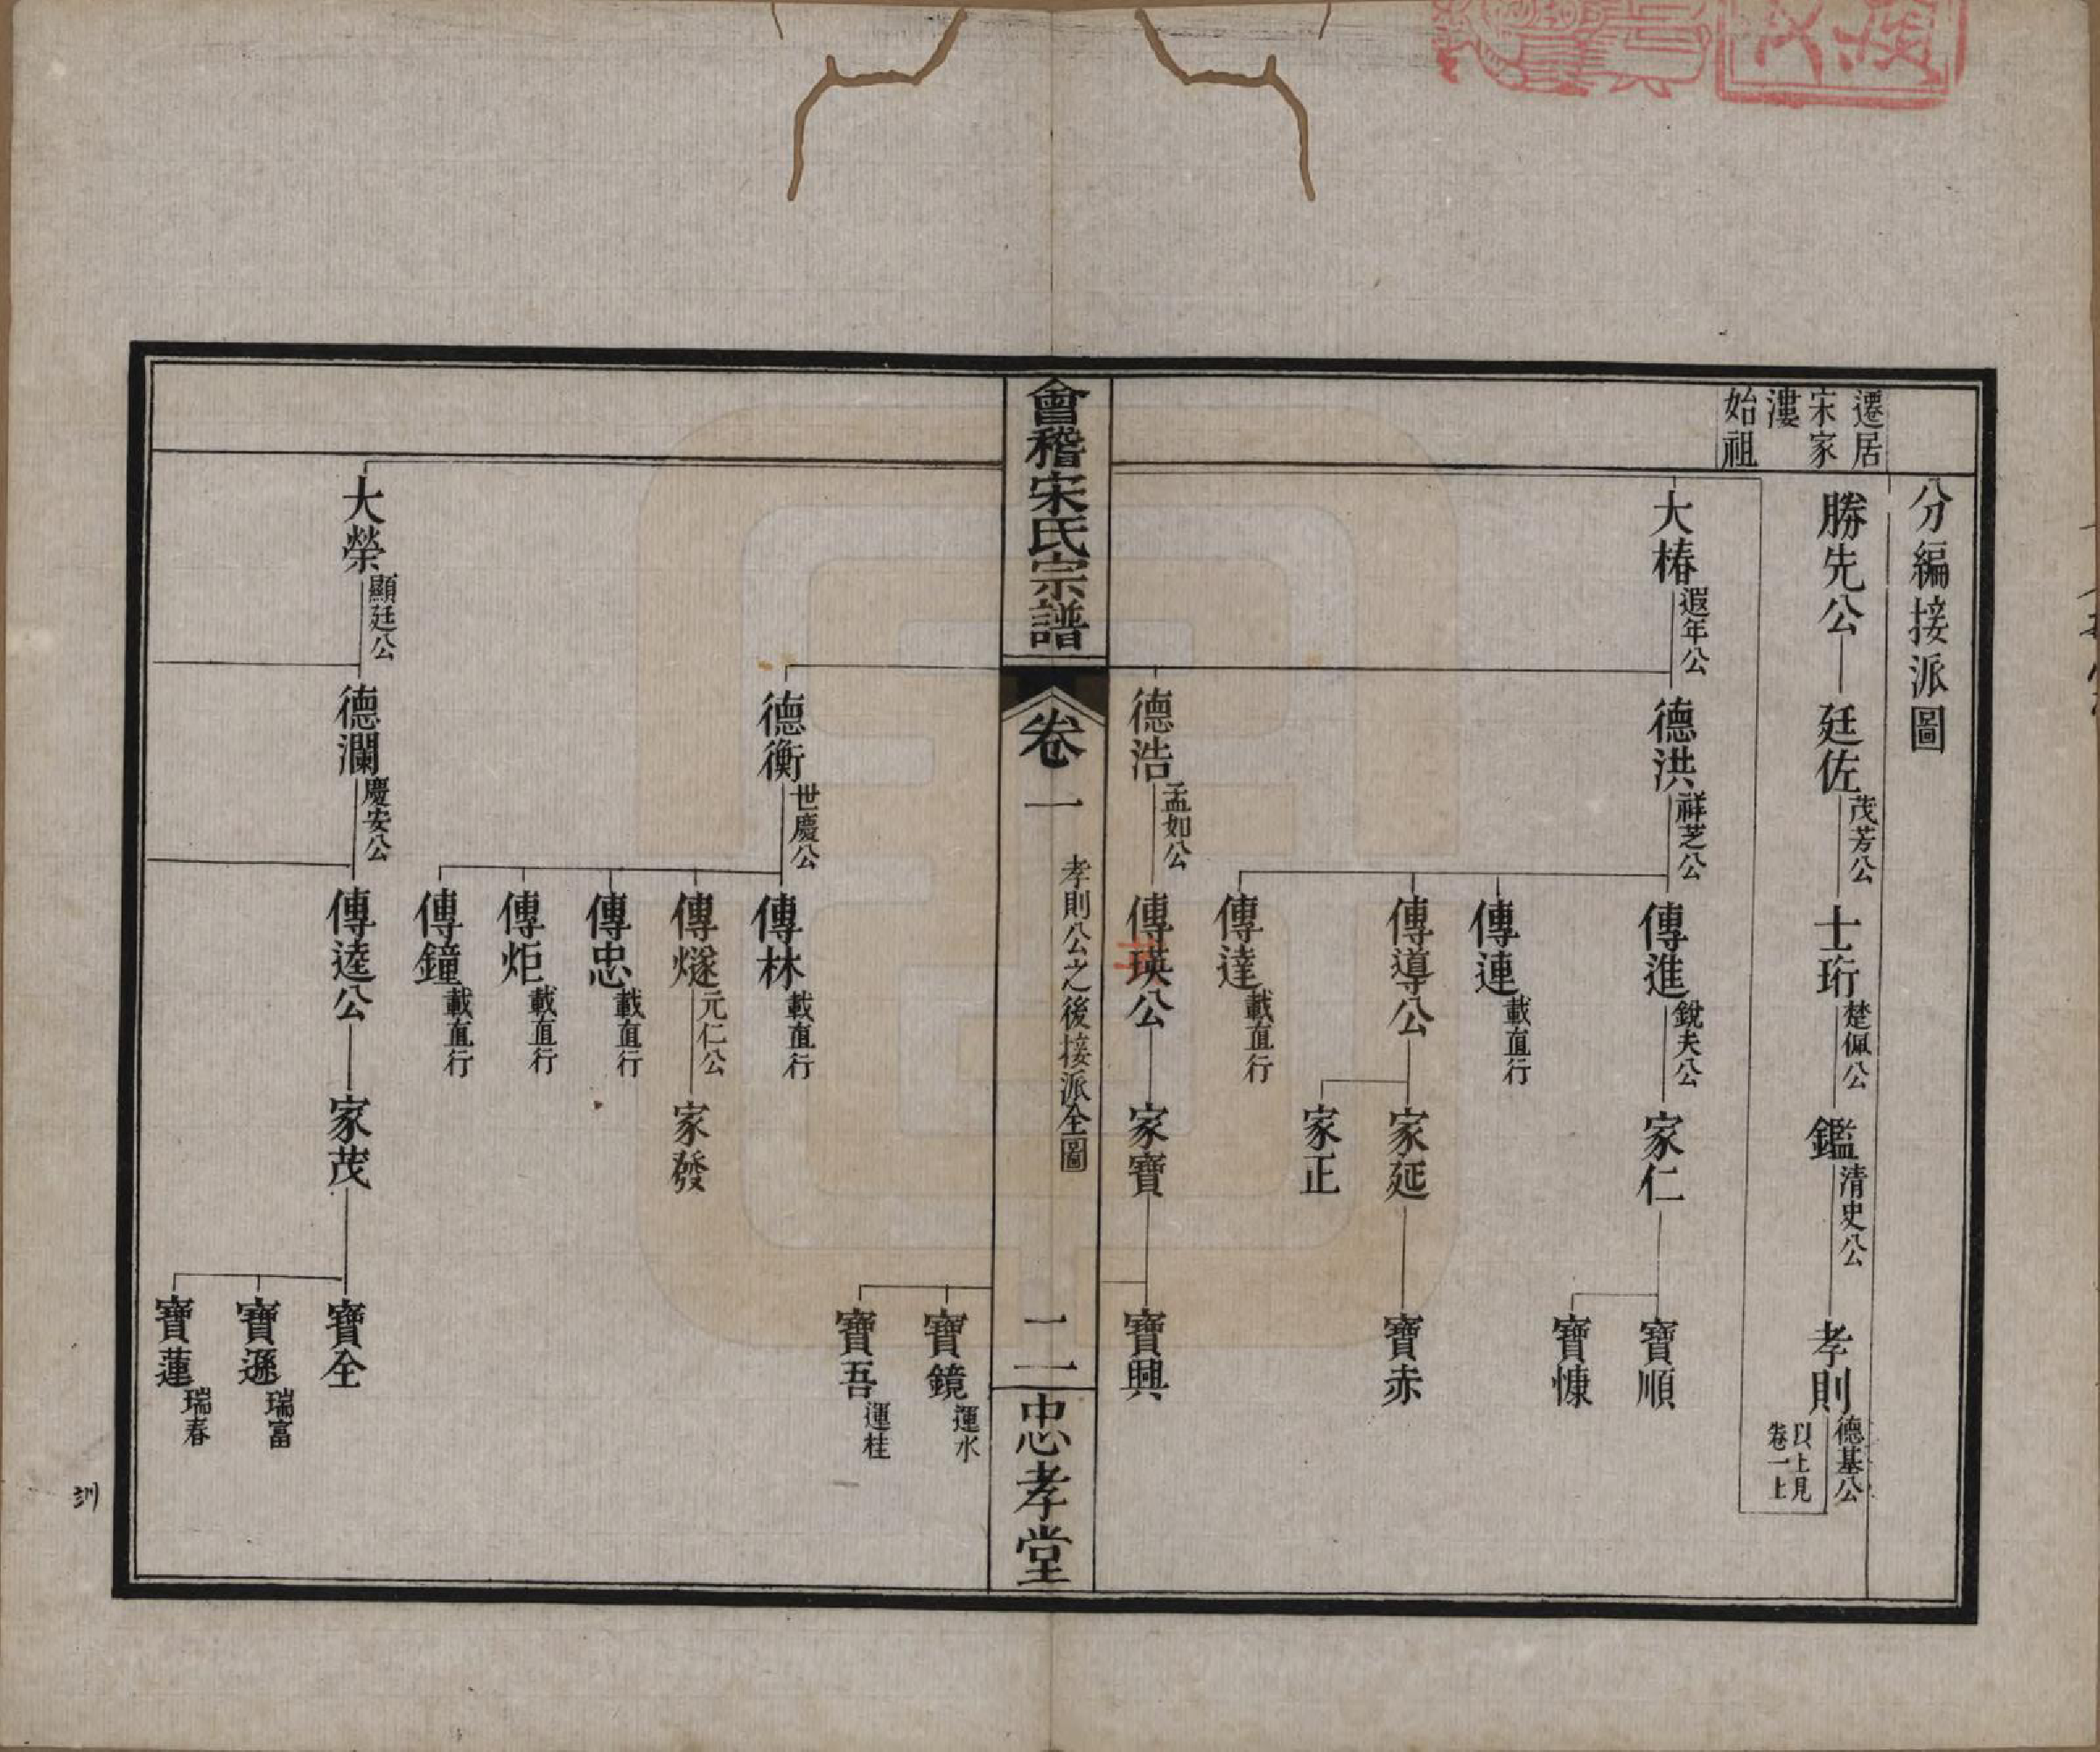 分編接派圖
遷居
宋家
漊
始祖
勝先公
廷佐 茂芳公
士珩 楚佩公
鑑 清史公
孝則 德基公
以上見
卷一上
大椿 遐年公
德洪 祥芝公
傳進 銳夫公
家仁
寶順
寶慷
傳連 載直行
傳導公
家延
寶赤
家正
傳達 載直行
德浩 孟如公
傳瑛公
家寶
寶興
會稽宋氏宗譜
卷一
孝則公之後接派全圖
二
忠孝堂
寶鏡 運水
寶吾 運桂
德衡 世慶公
傳林 載直行
傳燧 元仁公
家發
傳忠 載直行
傳炬 載直行
傳鐘 載直行
大榮 顯廷公
德瀾 慶安公
傳逵公
家茂
寶全
寶遜 瑞富
寶蓮 瑞春